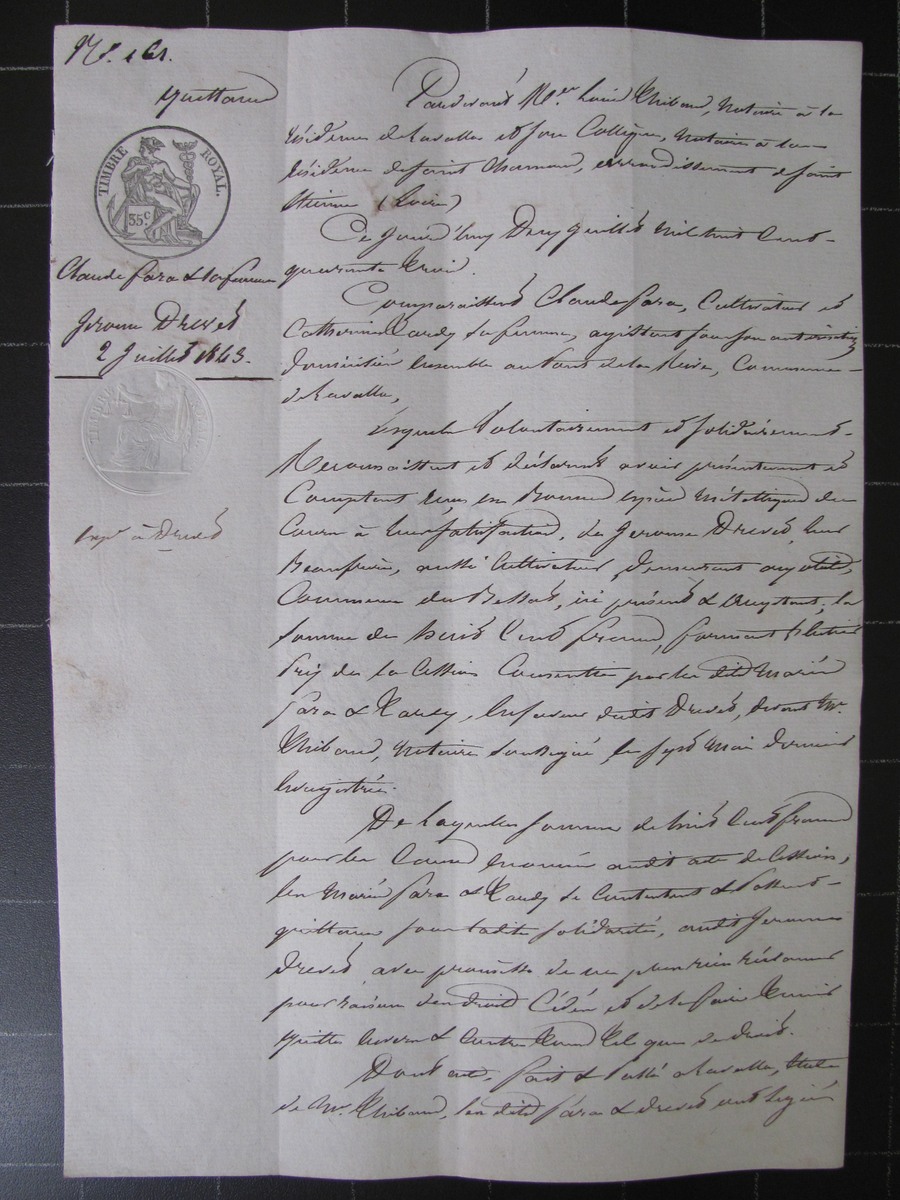 quittance
TIMBRE ROYAL.
35 c.
Claude fara & sa femme
Jerome Drevet
2 Juillet 1843.
exp.on à Drevet
Pardevant M.tre Louis Thibaud, Notaire à la
résidence de Lavalla et son Collègue, Notaire à la
résidence de saint Chamond, arrondissement de saint
Etienne (Loire)
Ce jourd'huy Deux Juillet Mil huit Cent
quarante trois.
Comparaissent Claude fara, Cultivateur et
Catherine Tardy sa femme, agissant sous son autorisation
domiciliés ensemble au de la Rive, Commune
de Lavalla,
Lesquels Volontairement et solidairement
Reconnaissent et déclarent avoir présentement et
Comptant reçu en Bonnes espèces Métalliques du
Cours à leur satisfaction, de Jerome Drevet, leur
Beaufrère, aussi Cultivateur, demeurant
Commune du Bessat, ici présent & acceptant, la
somme de huit Cents francs, formant l'entier
prix de la Cession Consentie par les dits Mariés
fara & Tardy, en faveur dudit Drevet, devant M.e
Thibaud, Notaire soussigné, le sept Mai dernier
Enregistrée.
De laquelle somme de huit Cents francs
pour les Causes énoncées audit acte de Cession,
les Mariés fara & Tardy se Contentent & Passent
quittance sous ladite solidarité, audit Jerome
Drevet avec promesse de ne plus rien réclamer
pour raison des droits Cédés et de le faire tenir
quitte Envers & Contre tous tels que de droit.
Dont acte, fait & Passé à Lavalla, Etude
de M.e Thibaud, les dits fara & Drevet ont signé